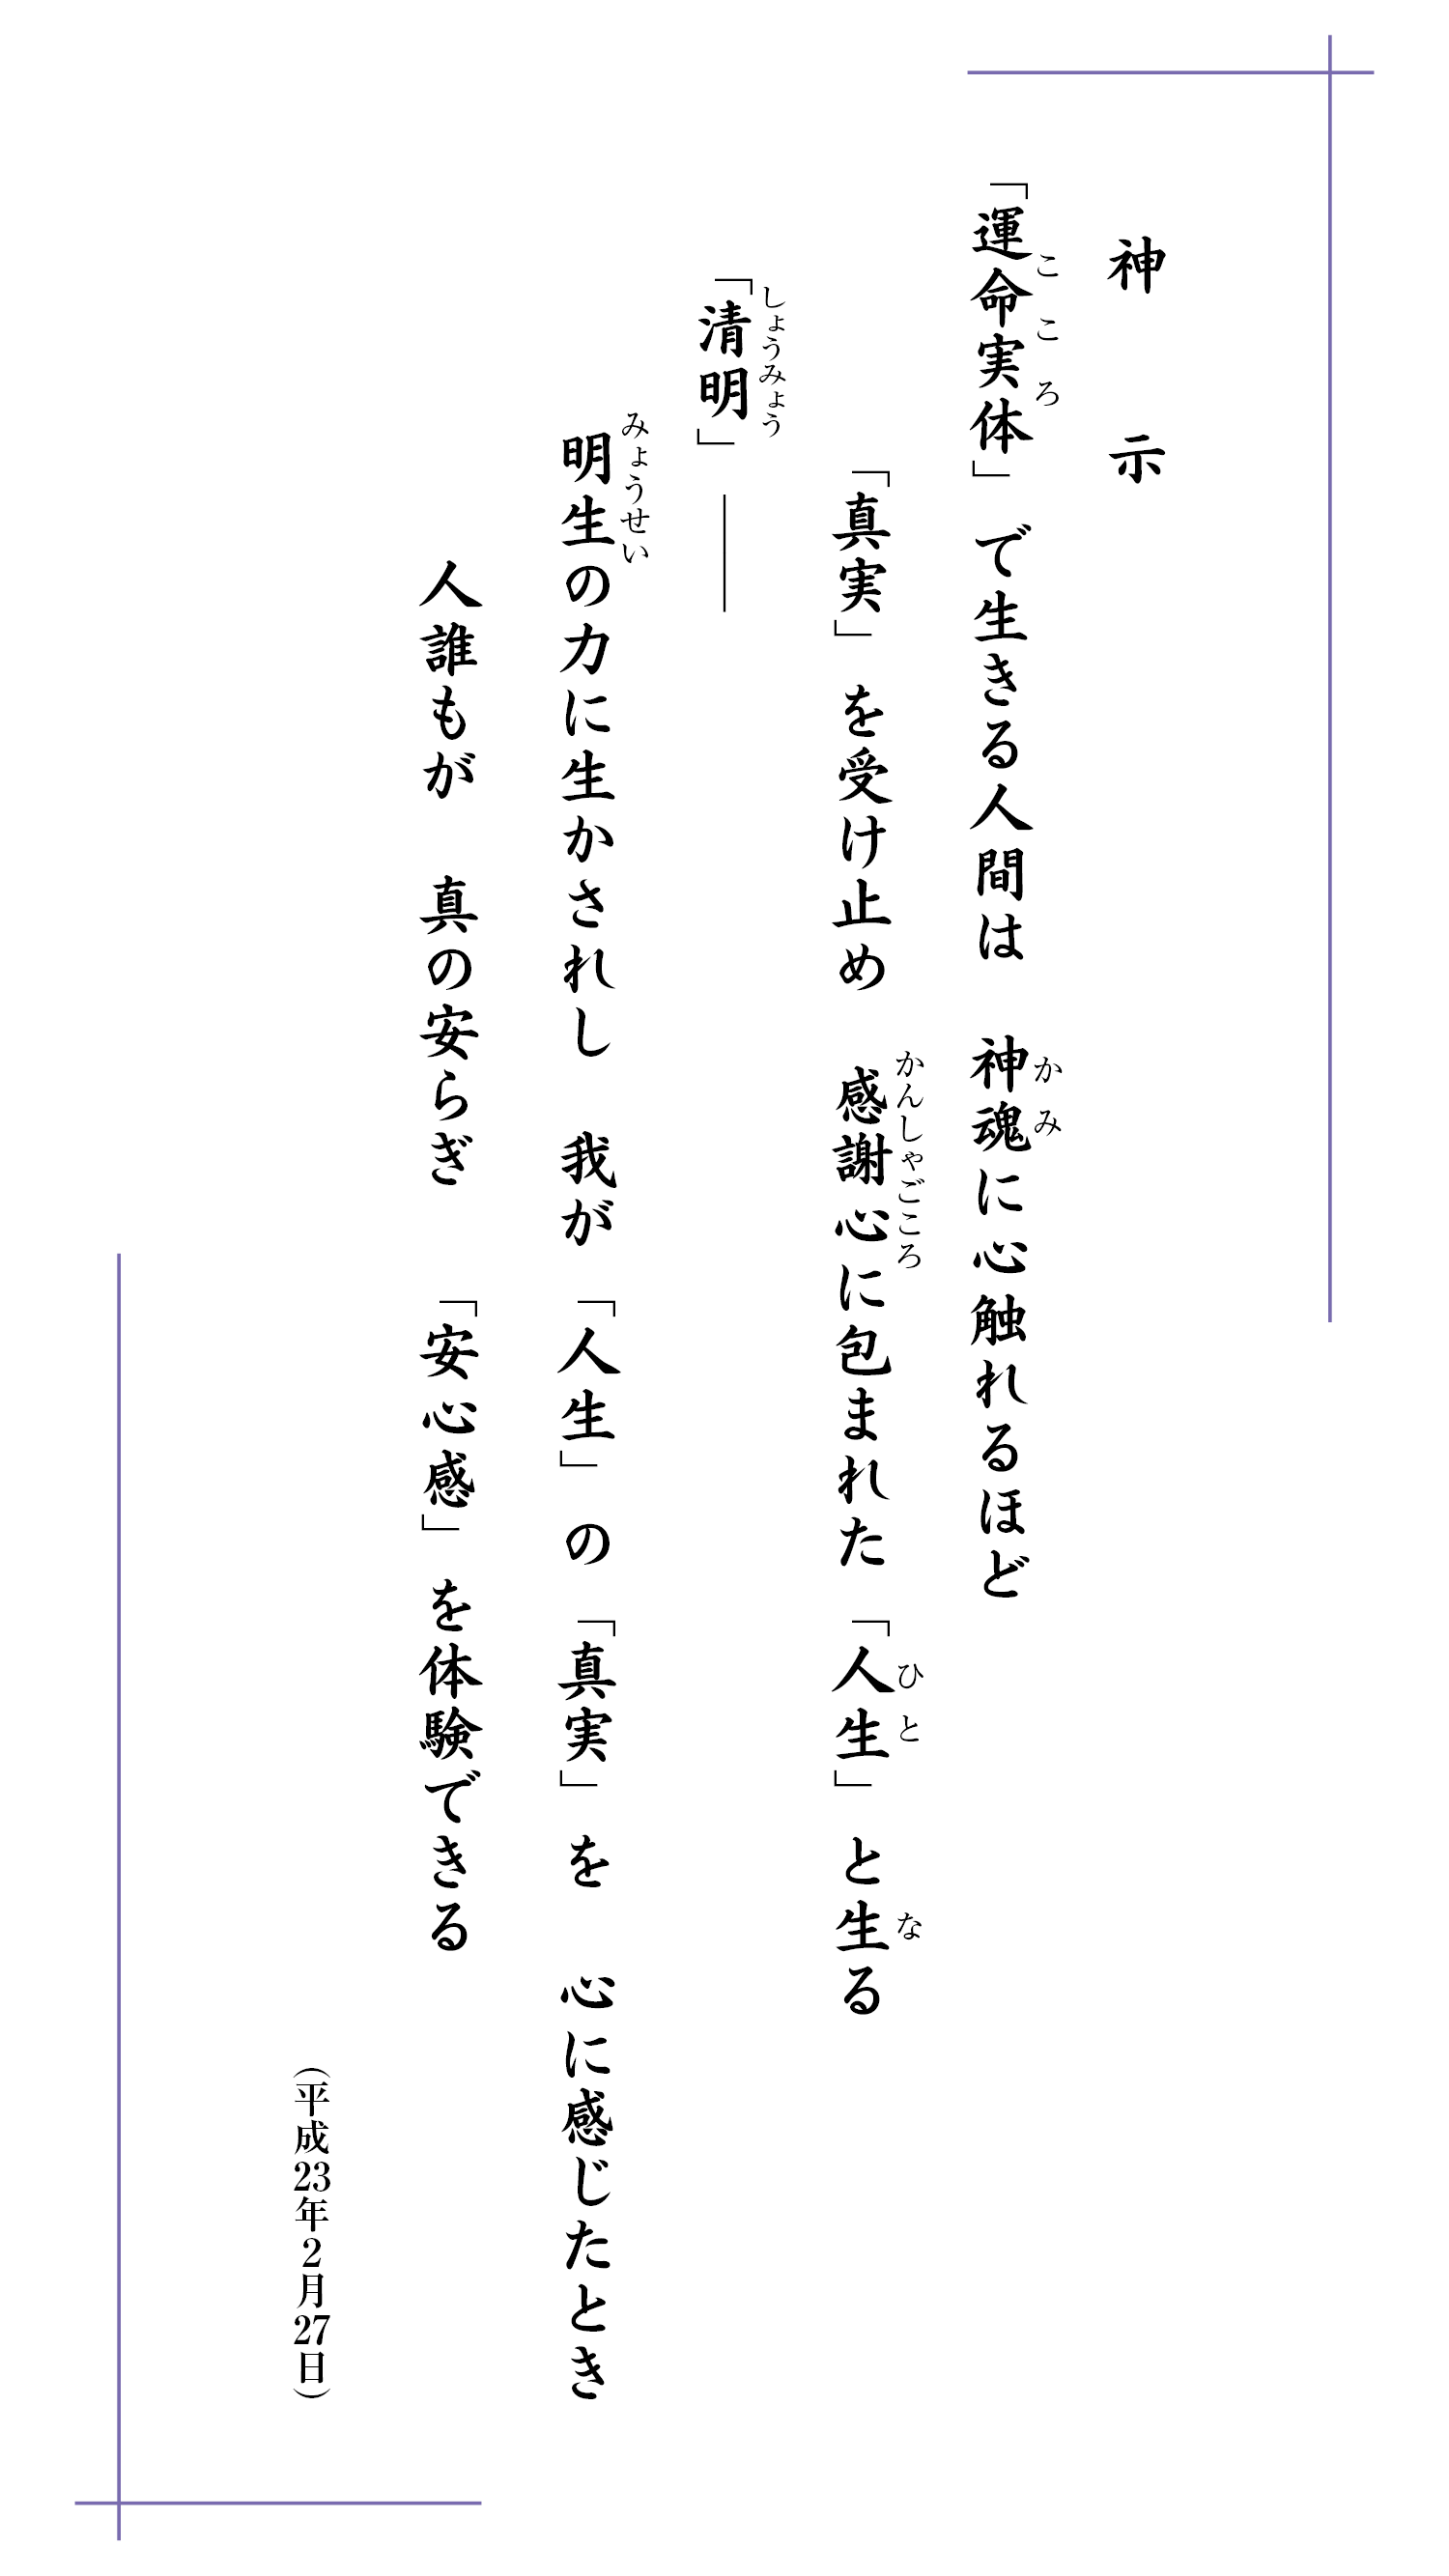 神　示
「運命実体」で生きる人間は　神魂に心触れるほど
こころ
かみ
「真実」を受け止め　感謝心に包まれた「人生」と生る
かんしゃごころ
ひと
な
「清明」――
しょうみょう
明生の力に生かされし　我が「人生」の「真実」を　心に感じたとき
みょうせい
人誰もが　真の安らぎ「安心感」を体験できる
（平成23年2月27日）